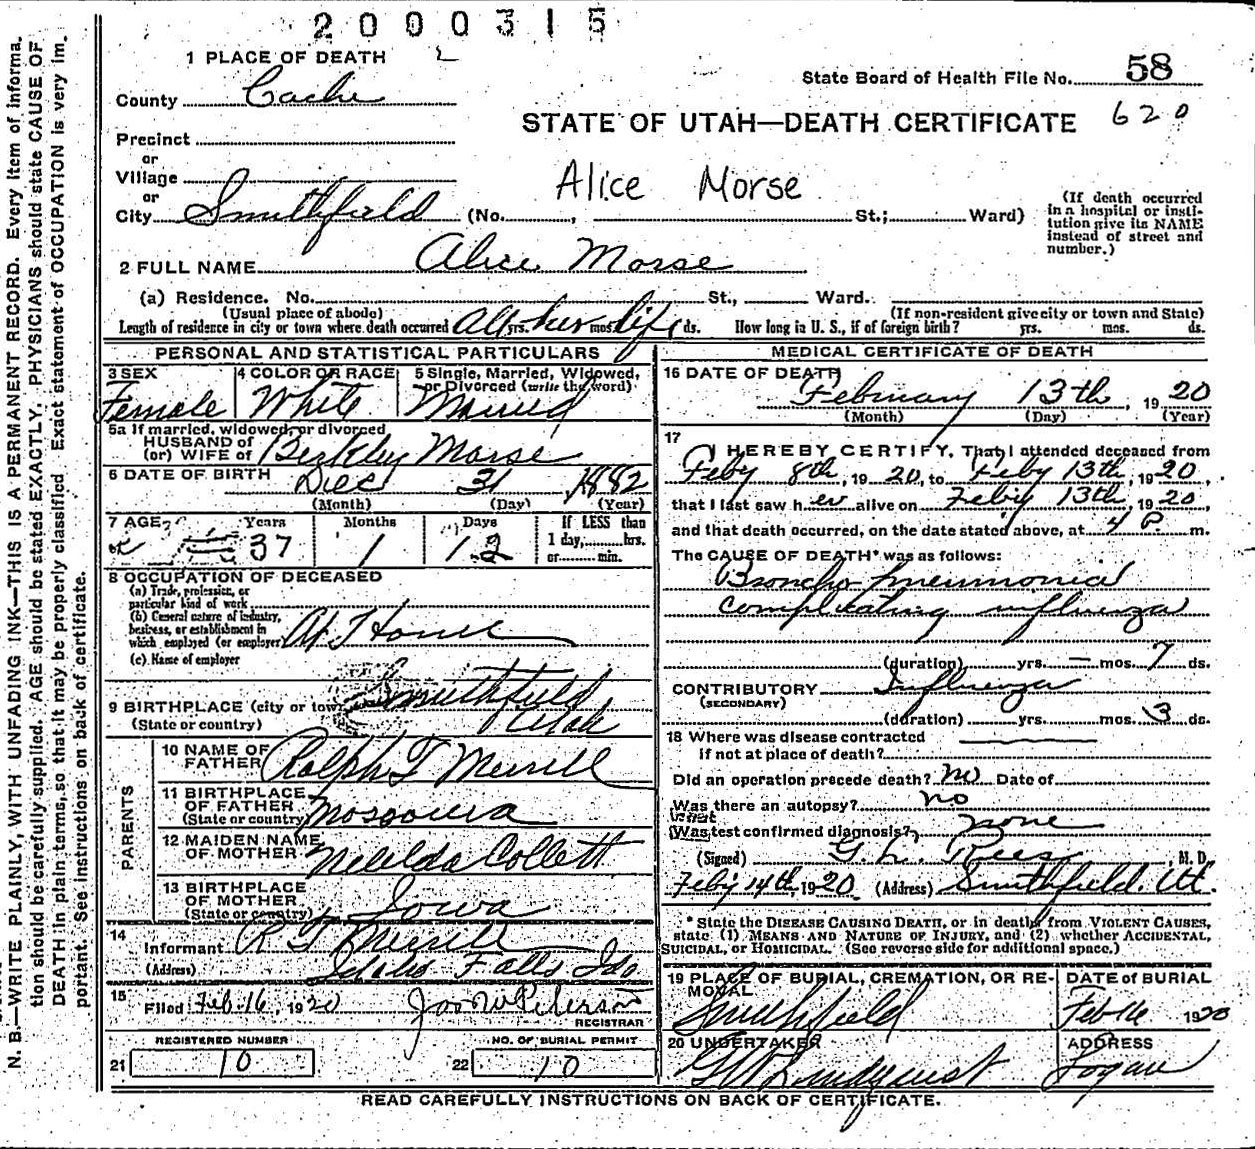 2000315
1 PLACE OF DEATH
State Board of Health File No. 58
County Cache
620
STATE OF UTAH—DEATH CERTIFICATE
Precinct
or
Village
Alice Morse
or
City Smithfield (No. , St.; Ward)
(If death occurred in a hospital or insti-
tution give its NAME
instead of street and
number.)
2 FULL NAME Alice Morse
(a) Residence. No. St., Ward.
(Usual place of abode) (If non-resident give city or town and State)
Length of residence in city or town where death occurred All yrs. her mos. life ds. How long in U. S., if of foreign birth? yrs. mos. ds.
PERSONAL AND STATISTICAL PARTICULARS
3 SEX 4 COLOR OR RACE 5 Single, Married, Widowed,
or Divorced (write the word)
Female White Married
5a If married, widowed, or divorced
HUSBAND of
(or) WIFE of Berkley Morse
6 DATE OF BIRTH Dec 31 1882
(Month) (Day) (Year)
7 AGE Years Months Days If LESS than
1 day, hrs.
or min.
37 1 12
8 OCCUPATION OF DECEASED
(a) Trade, profession, or
particular kind of work
(b) General nature of industry,
business, or establishment in
which employed (or employer) At Home
(c) Name of employer
9 BIRTHPLACE (city or town) Smithfield
(State or country) Utah
PARENTS
10 NAME OF
FATHER Ralph T Merrill
11 BIRTHPLACE
OF FATHER
(State or country)
12 MAIDEN NAME
OF MOTHER Collett
13 BIRTHPLACE
OF MOTHER
(State or country) Iowa
14
Informant R T Merrill
(Address) Idaho Falls Ido
15
Filed Feb. 16, 1920
REGISTRAR
REGISTERED NUMBER NO. OF BURIAL PERMIT
21 10 22 10
MEDICAL CERTIFICATE OF DEATH
16 DATE OF DEATH
February 13th, 1920
(Month) (Day) (Year)
17
I HEREBY CERTIFY, That I attended deceased from
Feby 8th, 1920, to Feby 13th, 1920,
that I last saw her alive on Feby 13th, 1920,
and that death occurred, on the date stated above, at 4 P. m.
The CAUSE OF DEATH* was as follows:
Broncho-pneumonia
complicating influenza
(duration) yrs. — mos. 7 ds.
CONTRIBUTORY Influenza
(SECONDARY)
(duration) yrs. mos. 3 ds.
18 Where was disease contracted
if not at place of death?
Did an operation precede death? no Date of
Was there an autopsy? no
What
(Was test confirmed diagnosis? none
(Signed) G. L. Rees, M. D.
Feby 14th, 1920 (Address) Smithfield. Ut.
* State the DISEASE CAUSING DEATH, or in deaths from VIOLENT CAUSES,
state (1) MEANS AND NATURE OF INJURY, and (2) whether ACCIDENTAL,
SUICIDAL, or HOMICIDAL. (See reverse side for additional space.)
19 PLACE OF BURIAL, CREMATION, OR RE-
MOVAL DATE of BURIAL
Smithfield Feb 16 1920
20 UNDERTAKER ADDRESS
Lindquist Logan
READ CAREFULLY INSTRUCTIONS ON BACK OF CERTIFICATE.
N. B.—WRITE PLAINLY, WITH UNFADING INK—THIS IS A PERMANENT RECORD. Every item of informa-
tion should be carefully supplied. AGE should be stated EXACTLY. PHYSICIANS should state CAUSE OF
DEATH in plain terms, so that it may be properly classified. Exact statement of OCCUPATION is very im-
portant. See instructions on back of certificate.